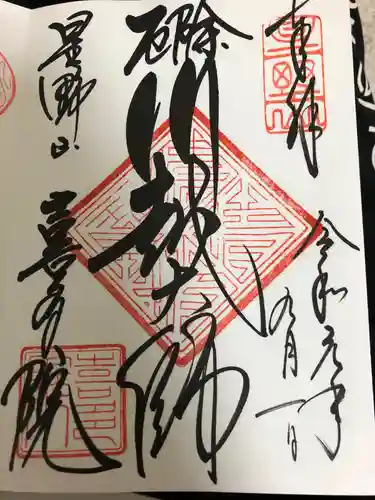 奉拝
令和元年
九月一日
厄除
川越大師
星野山
喜多院